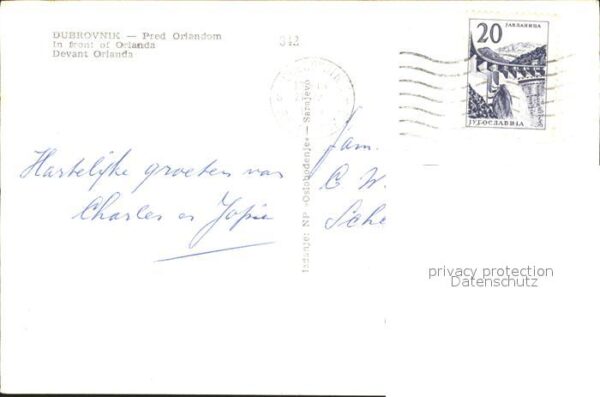 DUBROVNIK — Pred Orlandom
In front of Orlanda
Devant Orlanda
342
20
ЈАБЛАНИЦА
ЈУГОСЛАВИЈА
Hartelijke groeten van
Charles en Jopie
Izdanje: NP »Oslobođenje« — Sarajevo
Fam.
C W.
Sche
privacy protection
Datenschutz